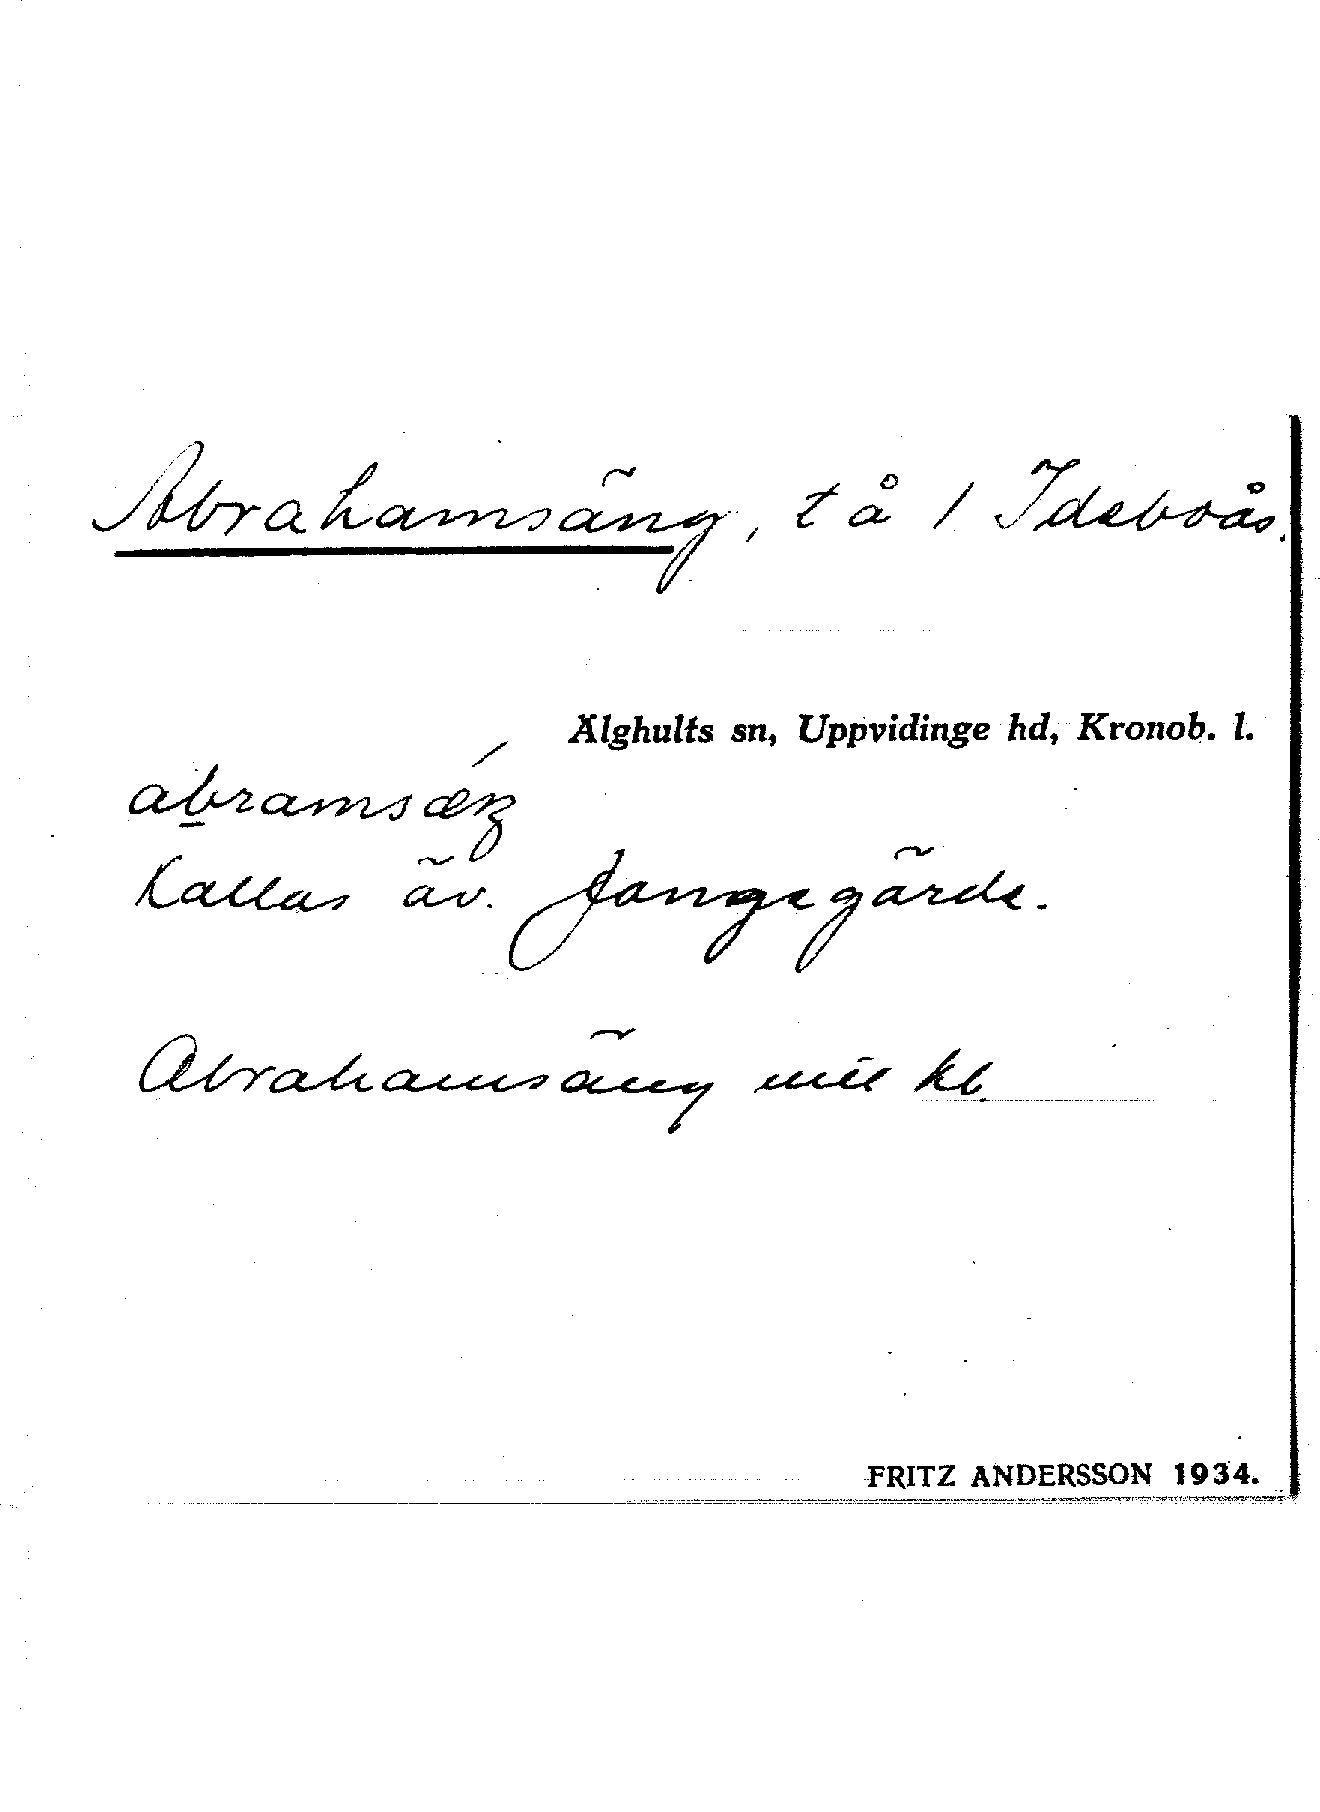 Abrahamsäng, tå 1 Ideboås.
Älghults sn, Uppvidinge hd, Kronob. l.
abramsǽŋ
Kallas äv. Jangegärde.
Abrahamsäng mtl kb.
FRITZ ANDERSSON 1934.